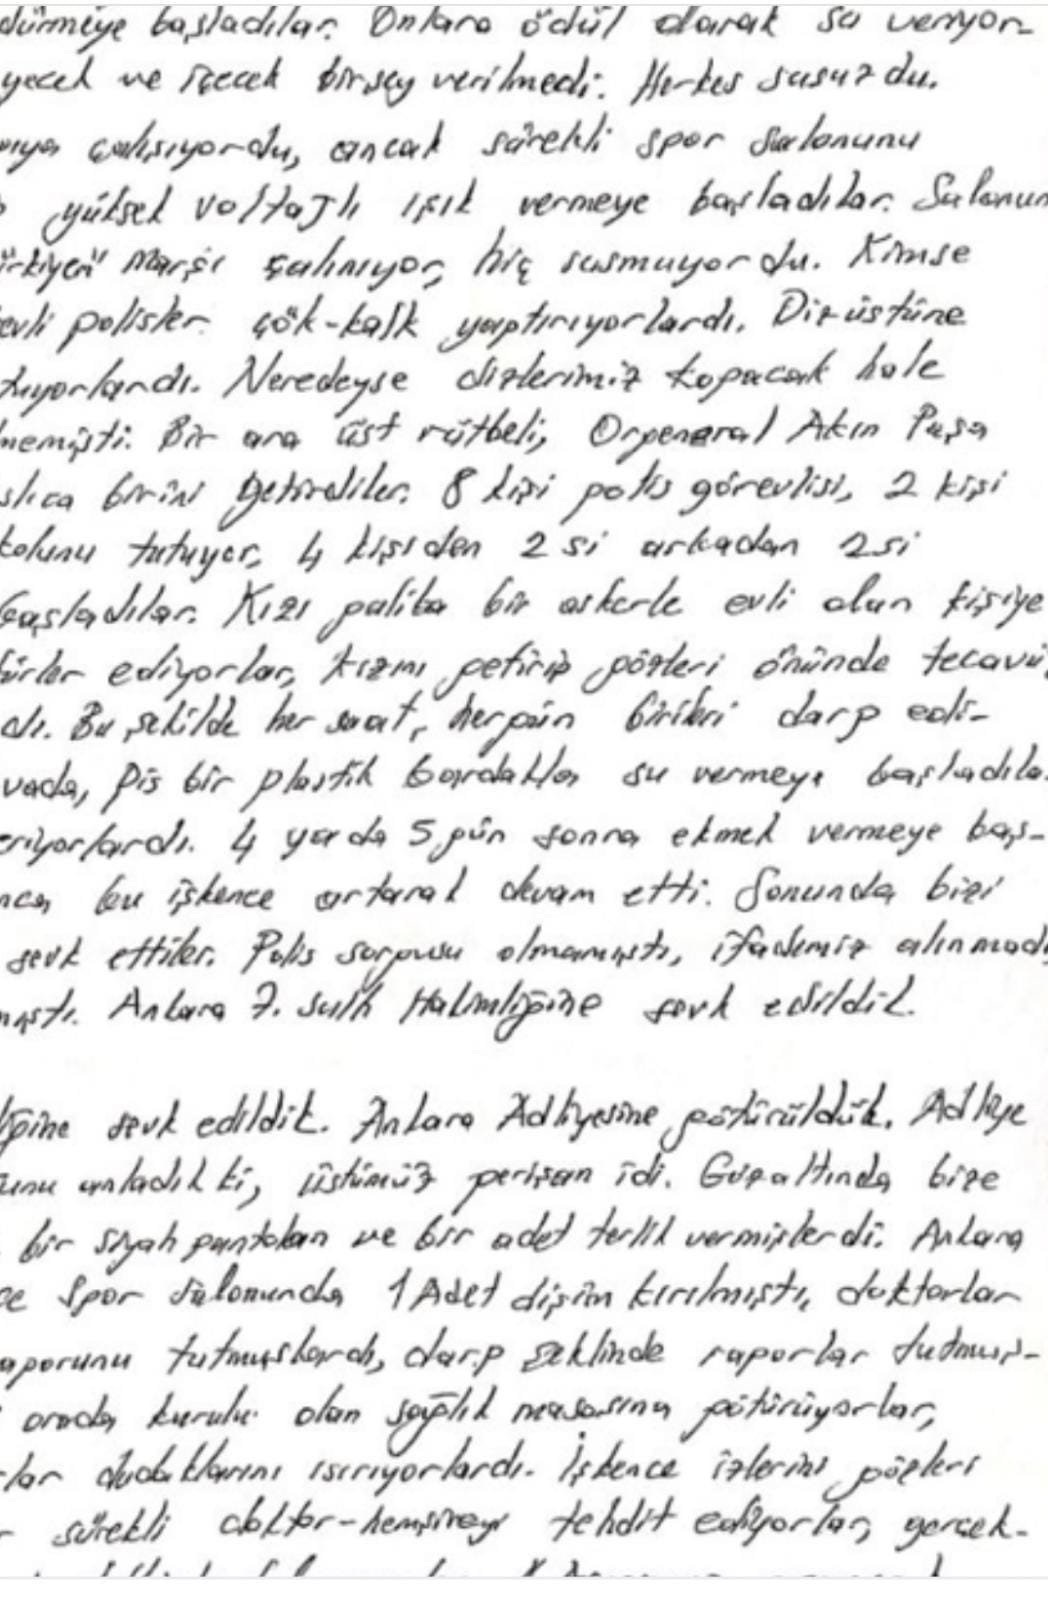 dürmeye başladılar. Onlara ödül olarak su veriyor-
yecek ve içecek birşey verilmedi. Herkes susuzdu.
çalışıyordu, ancak sürekli spor salonunu
yüksek voltajlı ışık vermeye başladılar. Salonun
Marşı çalınıyor, hiç susmuyordu. Kimse
evli polisler. çök-kalk yaptırıyorlardı. Dizüstüne
tuyorlardı. Neredeyse dizlerimiz kopacak hale
memişti. Bir ara üst rütbeli, Orgeneral Akın Paşa
slıca birini getirdiler. 8 kişi polis görevlisi, 2 kişi
kolunu tutuyor, 4 kişiden 2 si arkadan 2 si
başladılar. Kızı galiba bir askerle evli olan kişiye
fürler ediyorlar, kızını getirip gözleri önünde tecavü
dı. Bu şekilde her saat, hergün birileri darp edi-
vada, pis bir plastik bardakla su vermeye başladıla
eriyorlardı. 4 yada 5 gün sonra ekmek vermeye baş-
nca bu işkence artarak devam etti. Sonunda bizi
sevk ettiler. Polis sorgusu olmamıştı, ifademiz alınmadı
mıştı. Ankara 7. Sulh Hakimliğine sevk edildik.
liğine sevk edildik. Ankara Adliyesine götürüldük. Adliye
unu anladık ki, üstümüz perişan idi. Gözaltında bize
bir siyah pantolon ve bir adet terlik vermişlerdi. Ankara
Spor Salonunda 1 Adet dişim kırılmıştı, doktorlar
aporunu tutmuşlardı, darp şeklinde raporlar tutmuş-
orada kurulu olan sağlık masasına götürüyorlar,
rlar dudaklarını ısırıyorlardı. İşkence izlerini gözleri
r sürekli doktor-hemşireyi tehdit ediyorlar, gerçek-